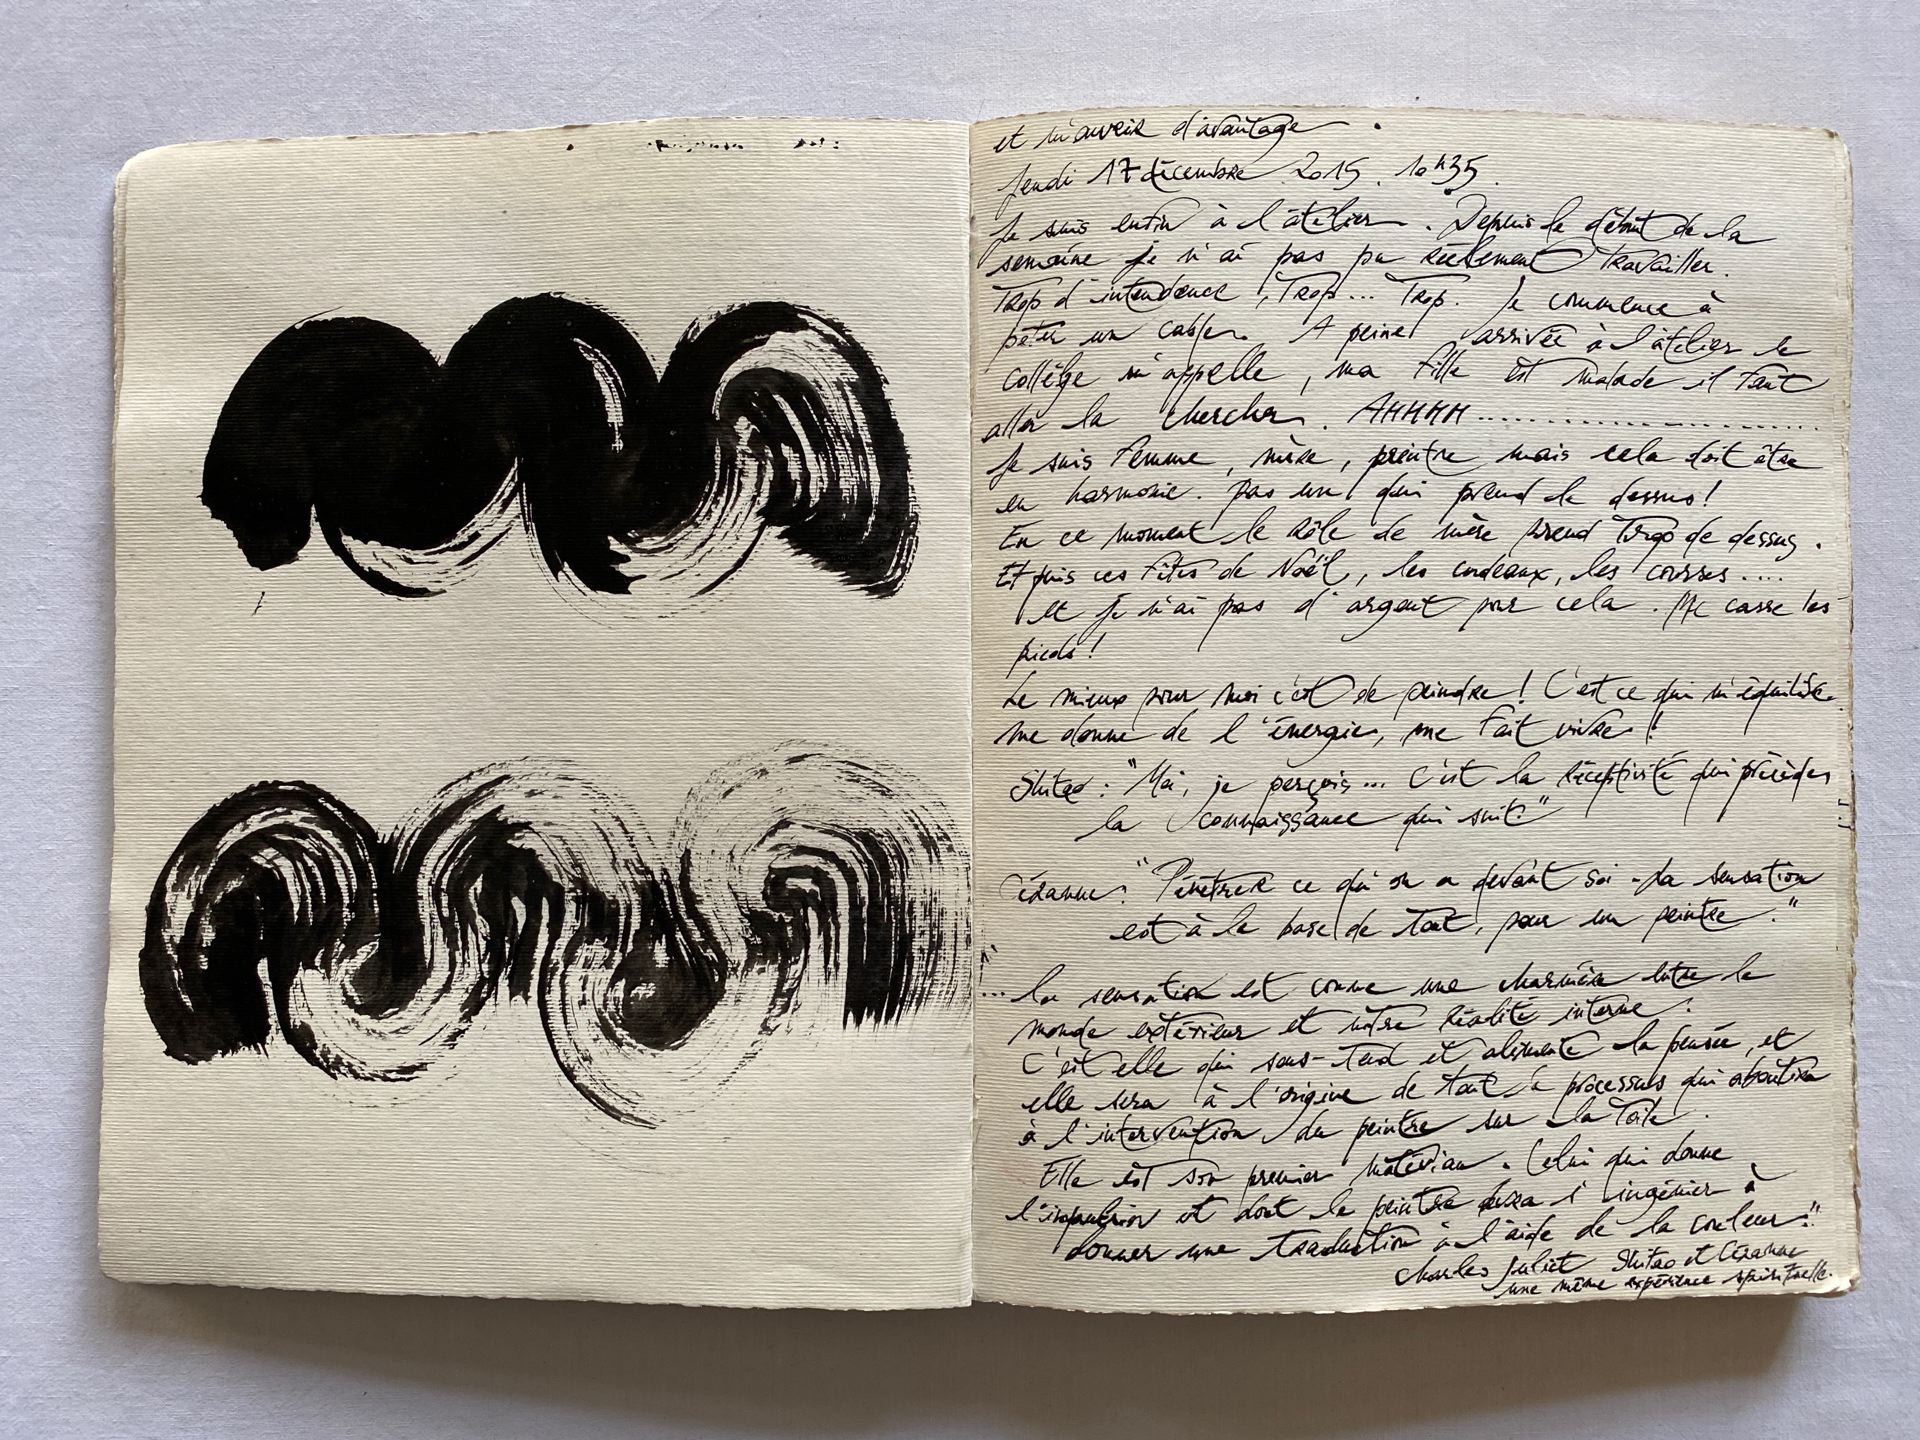 et m'ouvrir d'avantage.
Jeudi 17 décembre 2015. 10h35.
Je suis enfin à l'atelier. Depuis le début de la
semaine je n'ai pas pu réellement travailler.
Trop d'intendence, Trop... Trop. Je commence à
péter un cable. A peine arrivée à l'atelier le
collège m'appelle, ma fille est malade il faut
aller la chercher. AHHHH....................
Je suis Femme, mère, peintre mais cela doit être
en harmonie. pas un qui prend le dessus!
En ce moment le rôle de mère prend trop de dessus.
Et puis ces fêtes de Noël, les cadeaux, les courses....
et je n'ai pas d'argent pour cela. Me casse les
pieds!
Le mieux pour moi c'est de peindre! C'est ce qui m'équilibre.
me donne de l'énergie, me fait vivre!
Shitao : "Moi, je perçois... c'est la réceptivité qui précède
la connaissance qui suit."
Cézanne: "Pénétrer ce qu'on a devant soi - La sensation
est à la base de tout, pour un peintre."
... la sensation est comme une charnière entre le
monde extérieur et notre réalité interne.
C'est elle qui sous-tend et alimente la pensée, et
elle sera à l'origine de tout le processus qui aboutira
à l'intervention du peintre sur la toile.
Elle est son premier matériau. Celui qui donne
l'impulsion et dont le peintre devra s'ingénier à
donner une traduction à l'aide de la couleur."
Charles Juliet Shitao et Cézanne
une même expérience spirituelle.